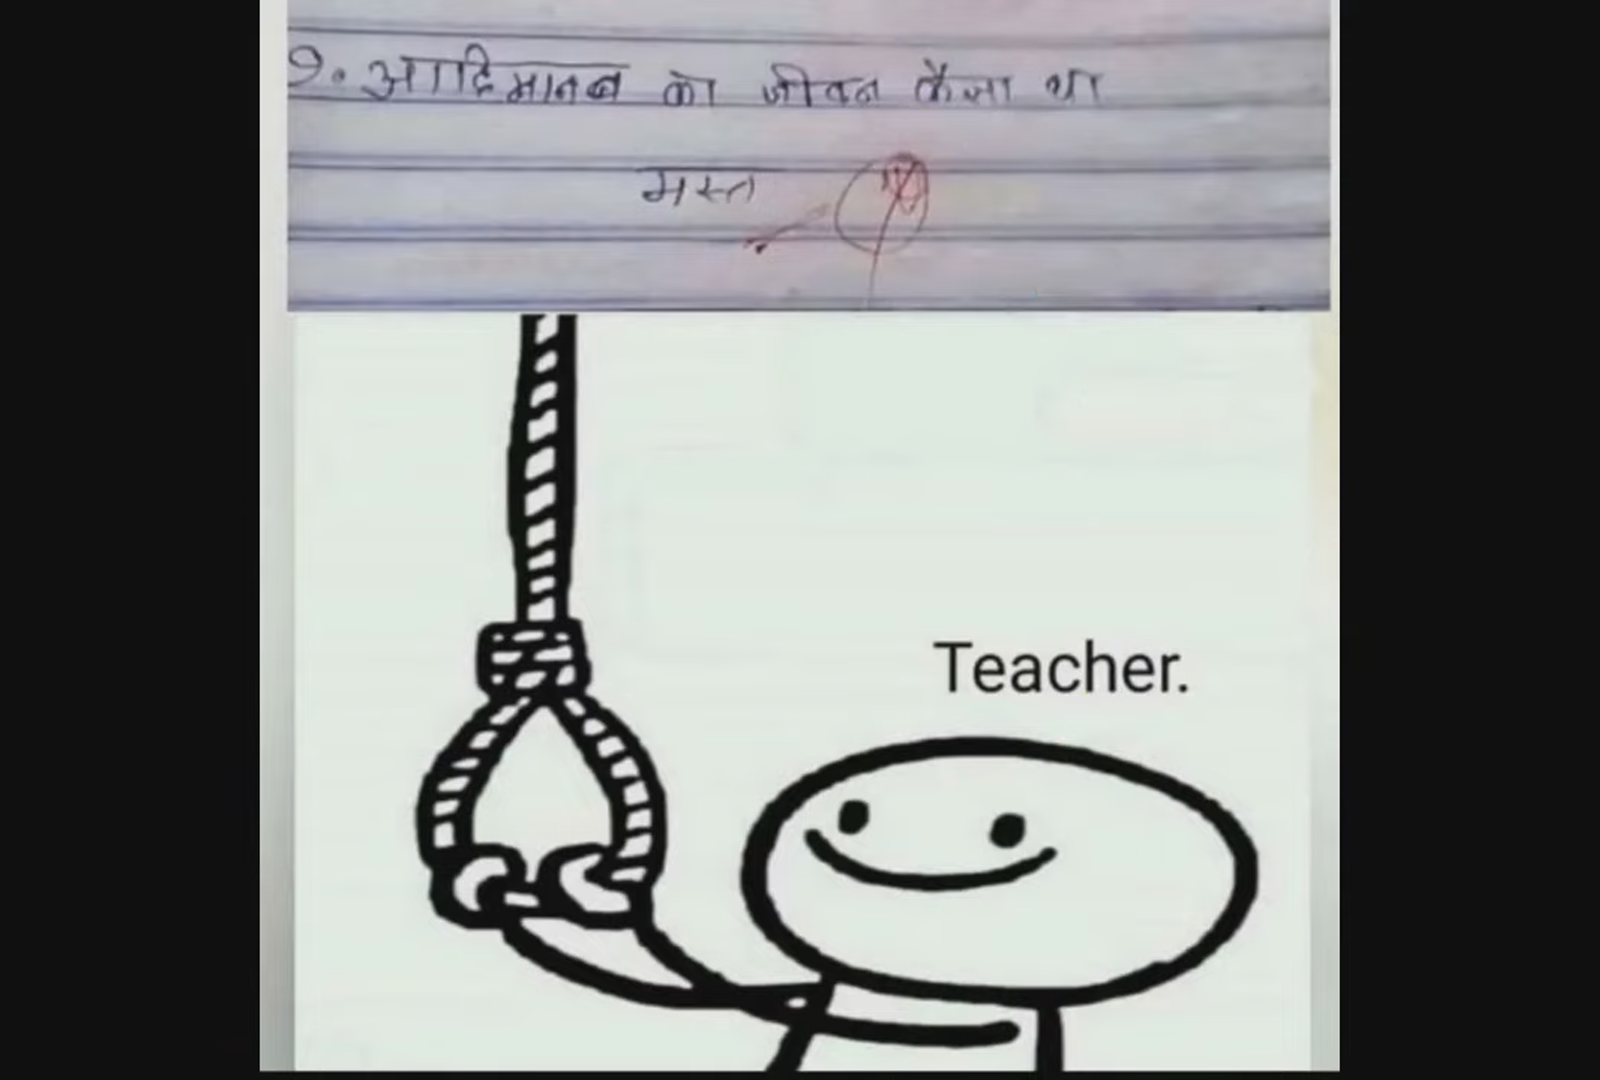 9. आदिमानब को जीवन कैसा था
मस्त
Teacher.